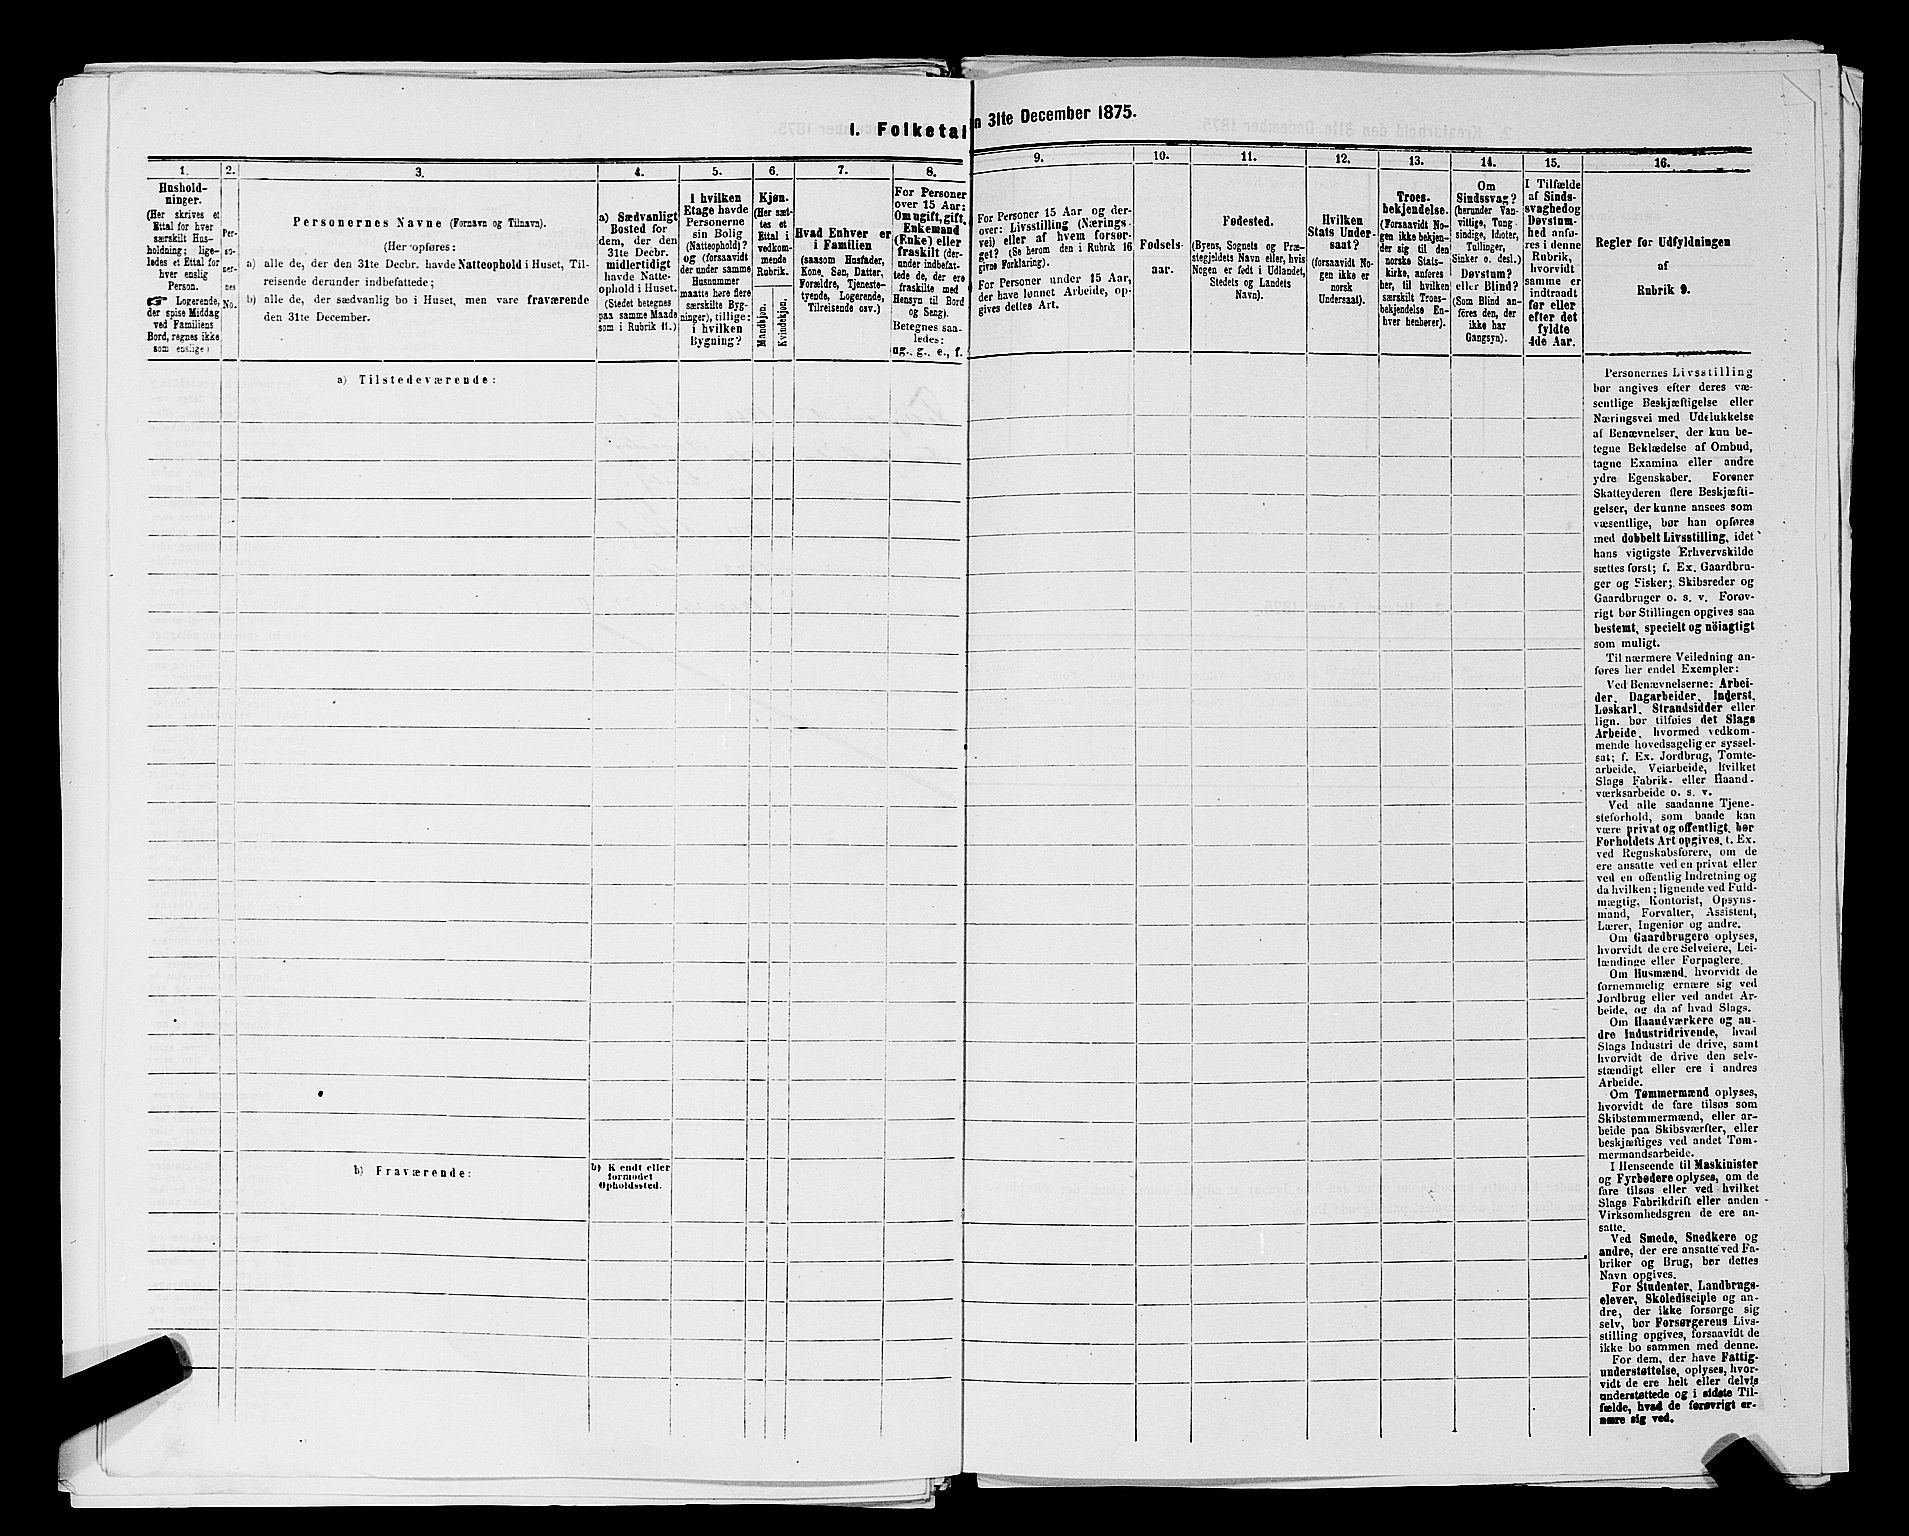 1. Folketal
n 31te December 1875.
1.
Hushold-
ninger.
(Her skrives et
Ettal for hver
særskilt Hus-
holdning; lige-
ledes et Ettal for
hver enslig
Person.
☞ Logerende,
der spise Middag
ved Familiens
Bord, regnes ikke
som enslige)
2.
Per-
so-
ner-
nes
No.
3.
Personernes Navne (Fornavn og Tilnavn).
(Her opføres:
a) alle de, der den 31te Decbr. havde Natteophold i Huset, Til-
reisende derunder indbefattede;
b) alle de, der sædvanlig bo i Huset, men vare fraværende
den 31te December.
4.
a) Sædvanligt
Bosted for
dem, der den
31te Decbr.
midlertidigt
havde Natte-
ophold i Huset.
(Stedet betegnes
paa samme Maade
som i Rubrik 11.)
5.
I hvilken
Etage havde
Personerne
sin Bolig
(Natteophold)?
og (forsaavidt
der under samme
Husnummer
maatte høre flere
særskilte Byg-
ninger), tillige:
i hvilken
Bygning?
6.
Kjøn.
(Her sæt-
tes et
Ettal i
vedkom-
mende
Rubrik.
Mandkjøn.
Kvindekjøn.
7.
Hvad Enhver er
i Familien
(saasom Husfader,
Kone, Søn, Datter,
Forældre, Tjeneste-
tyende, Logerende,
Tilreisende osv.)
8.
For Personer
over 15 Aar:
Om ugift, gift,
Enkemand
(Enke) eller
fraskilt (der-
under indbefat-
tede de, der ere
fraskilte med
Hensyn til Bord
og Seng).
Betegnes saa-
ledes:
ug., g., e., f.
9.
For Personer 15 Aar og der-
over: Livsstilling (Nærings-
vei) eller af hvem forsør-
get? (Se herom den i Rubrik 16
givne Forklaring).
For Personer under 15 Aar,
der have lønnet Arbeide, op-
gives dettes Art.
10.
Fødsels-
aar.
11.
Fødested.
(Byens, Sognets og Præ-
stegjeldets Navn eller, hvis
Nogen er født i Udlandet,
Stedets og Landets
Navn).
12.
Hvilken
Stats Under-
saat?
(forsaavidt No-
gen ikke er
norsk
Undersaat).
13.
Troes-
bekjendelse.
(Forsaavidt No-
gen ikke bekjen-
der sig til den
norske Stats-
kirke, anføres
her, til hvilken
særskilt Troes-
bekjendelse En-
hver henhører).
14.
Om
Sindssvag?
(herunder Van-
vittige, Tung-
sindige, Idioter,
Tullinger,
Sinker o. desl.)
Døvstum?
eller Blind?
(Som Blind an-
føres den, der
ikke har
Gangsyn).
15.
I Tilfælde
af Sinds-
svaghed og
Døvstum-
hed anfø-
res i denne
Rubrik,
hvorvidt
samme er
indtraadt
før eller
efter det
fyldte
4de Aar.
16.
Regler for Udfyldningen
af
Rubrik 9.
a) Tilstedeværende:
b) Fraværende:
b) Kendt eller
formodet
Opholdssted.
Personernes Livsstilling
bør angives efter deres væ-
sentlige Beskjæftigelse eller
Næringsvei med Udelukkelse
af Benævnelser, der kun be-
tegne Beklædelse af Ombud,
tagne Examina eller andre
ydre Egenskaber. Forener
Skatteyderen flere Beskjæfti-
gelser, der kunne ansees som
væsentlige, bør han opføres
med dobbelt Livsstilling, idet
hans vigtigste Erhvervskilde
sættes først; f. Ex. Gaardbru-
ger og Fisker; Skibsreder og
Gaardbruger o. s. v. Forøv-
rigt bør Stillingen opgives saa
bestemt, specielt og nöiagtigt
som muligt.
Til nærmere Veiledning an-
føres her endel Exempler:
Ved Benævnelserne: Arbei-
der, Dagarbeider, Inderst,
Løskarl, Strandsidder eller
lign. bør tilføies det Slags
Arbeide, hvormed vedkom-
mende hovedsagelig er syssel-
sat; f. Ex. Jordbrug, Tomte-
arbeide, Veiarbeide, hvilket
Slags Fabrik- eller Haand-
værksarbeide o. s. v.
Ved alle saadanne Tjene-
steforhold, som baade kan
være privat og offentligt, bør
Forholdets Art opgives, f. Ex.
ved Regnskabsførere, om de
ere ansatte ved en privat eller
ved en offentlig Indretning og
da hvilken; lignende ved Fuld-
mægtig, Kontorist, Opsyns-
mand, Forvalter, Assistent,
Lærer, Ingeniør og andre.
Om Gaardbrugere oplyses,
hvorvidt de ere Selveiere, Lei-
lændinge eller Forpagtere.
Om Husmænd, hvorvidt de
fornemmelig ernære sig ved
Jordbrug eller ved andet Ar-
beide, og da af hvad Slags.
Om Haandværkere og an-
dre Industridrivende, hvad
Slags Industri de drive, samt
hvorvidt de drive den selv-
stændigt eller ere i andres
Arbeide.
Om Tømmermænd oplyses,
hvorvidt de fare tilsøs som
Skibstømmermænd, eller ar-
beide paa Skibsværfter, eller
beskjæftiges ved andet Tøm-
mermandsarbeide.
I Henseende til Maskinister
og Fyrbødere oplyses, om de
fare tilsøs eller ved hvilket
Slags Fabrikdrift eller anden
Virksomhedsgren de ere an-
satte.
Ved Smede, Snedkere og
andre, der ere ansatte ved Fa-
briker og Brug, bør dettes
Navn opgives.
For Studenter, Landbrugs-
elever, Skoledisciple og an-
dre, der ikke forsørge sig
selv, bør Forsørgerens Livs-
stilling opgives, forsaavidt de
ikke bo sammen med denne.
For dem, der have Fattig-
understøttelse, oplyses, hvor-
vidt de ere helt eller delvis
understøttede og i sidste Til-
fælde, hvad de forøvrigt er-
nære sig ved.